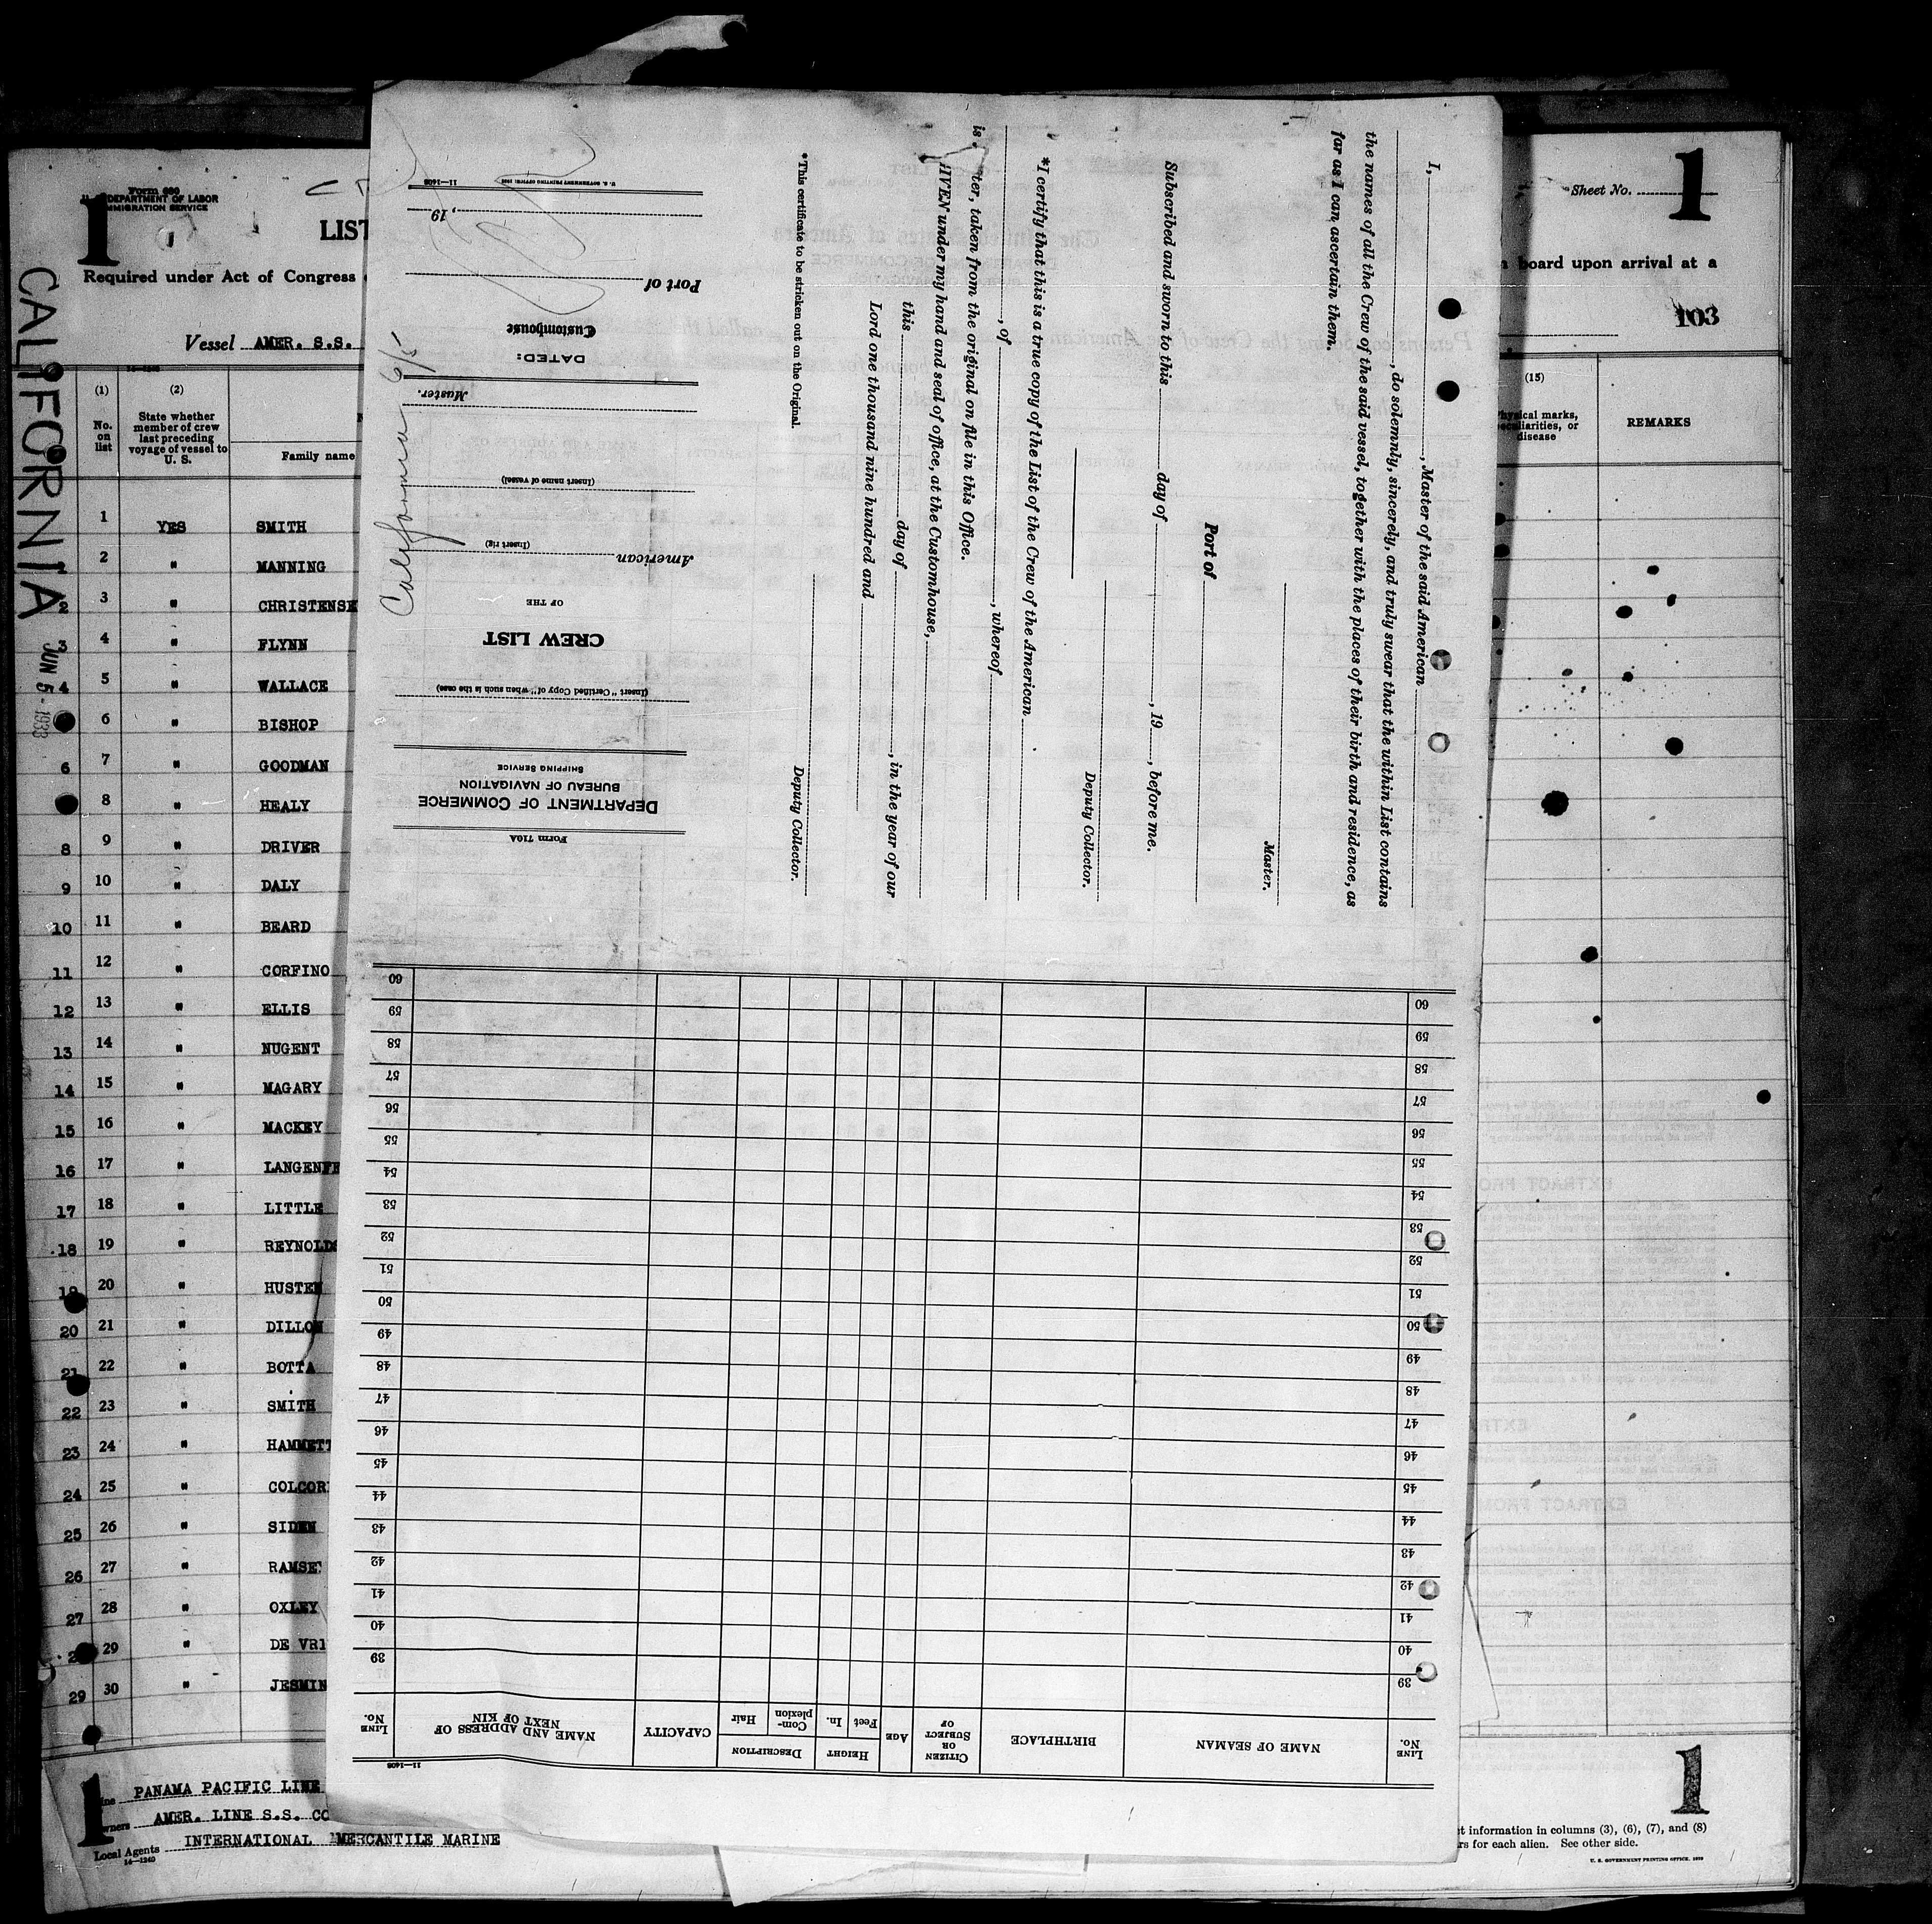 Form 680
U. S. DEPARTMENT OF LABOR
IMMIGRATION SERVICE
1
LIST
Required under Act of Congress
Vessel AMER. S.S.
CALIFORNIA
JUN 5 - 1933
Sheet No.
1
board upon arrival at a
103
14—1240
(1)
No.
on
list
(2)
State whether
member of crew
last preceding
voyage of vessel to
U. S.
Family name
(15)
Physical marks,
peculiarities, or
disease
REMARKS
1 YES SMITH
1 2 " MANNING
2 3 " CHRISTENSE
3 4 " FLYNN
4 5 " WALLACE
6 " BISHOP
6 7 " GOODMAN
8 " HEALY
8 9 " DRIVER
9 10 " DALY
10 11 " BEARD
11 12 " CORFINO
12 13 " ELLIS
13 14 " NUGENT
14 15 " MAGARY
15 16 " MACKEY
16 17 " LANGENFE
17 18 " LITTLE
18 19 " REYNOLDS
19 20 " HUSTEN
20 21 " DILLON
21 22 " BOTTA
22 23 " SMITH
23 24 " HAMMETT
24 25 " COLCOR
25 26 " SIDEN
26 27 " RAMSE
27 28 " OXLEY
29 " DE VRI
29 30 " JESMIN
1
Line PANAMA PACIFIC LINE
Owners AMER. LINE S.S. CO
Local Agents INTERNATIONAL MERCANTILE MARINE
14—1240
1
information in columns (3), (6), (7), and (8)
for each alien. See other side.
U. S. GOVERNMENT PRINTING OFFICE
I, , Master of the said American
, do solemnly, sincerely, and truly swear that the within List contains
the names of all the Crew of the said vessel, together with the places of their birth and residence, as
far as I can ascertain them.
Master.
Port of
Subscribed and sworn to this day of , 19 , before me.
Deputy Collector.
*I certify that this is a true copy of the List of the Crew of the American
, of , whereof
is ter, taken from the original on file in this Office.
IVEN under my hand and seal of office, at the Customhouse,
this day of , in the year of our
Lord one thousand nine hundred and
Deputy Collector.
*This certificate to be stricken out on the Original.
Form 710A
DEPARTMENT OF COMMERCE
BUREAU OF NAVIGATION
SHIPPING SERVICE
(Insert "Certified Copy of" when such is the case)
CREW LIST
OF THE
American
(Insert rig)
(Insert name of vessel)
Master.
DATED:
Customhouse
Port of
, 19
U. S. GOVERNMENT PRINTING OFFICE 11—1408
California 6/5
11—1408
LINE
No.
NAME OF SEAMAN
BIRTHPLACE
CITIZEN
OR
SUBJECT
OF
AGE
HEIGHT
Feet
In.
DESCRIPTION
Com-
plexion
Hair
CAPACITY
NAME AND ADDRESS OF
NEXT OF KIN
LINE
No.
39 39
40 40
41 41
42 42
43 43
44 44
45 45
46 46
47 47
48 48
49 49
50 50
51 51
52 52
53 53
54 54
55 55
56 56
57 57
58 58
59 59
60 60